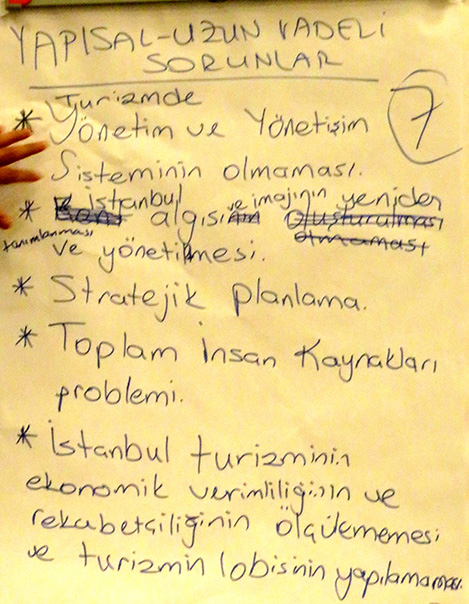 YAPISAL-UZUN VADELİ
SORUNLAR
7
* Turizmde
Yönetim ve Yönetişim
Sisteminin olmaması.
* İstanbul ve imajının yeniden
algısının
tanımlanması
ve yönetilmesi.
* Stratejik planlama.
* Toplam İnsan Kaynakları
problemi.
* İstanbul turizminin
ekonomik verimliliğinin ve
rekabetçiliğinin ölçülememesi
ve turizmin lobisinin yapılamaması